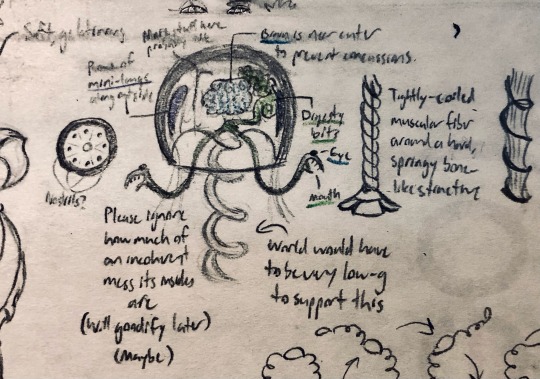 Soft, gelatinous
More stuff here
probably
Brain is near center
to prevent concussions.
mini-lungs
along outside
Digesty
bits
Eye
mouth
Nostrils?
Tightly-coiled
muscular fibr
around a hard,
springy bone-
like structure
Please ignore
how much of
an incoherent
mess its insides
are
(will goodify later)
(maybe)
world would have
to be very low-g
to support this